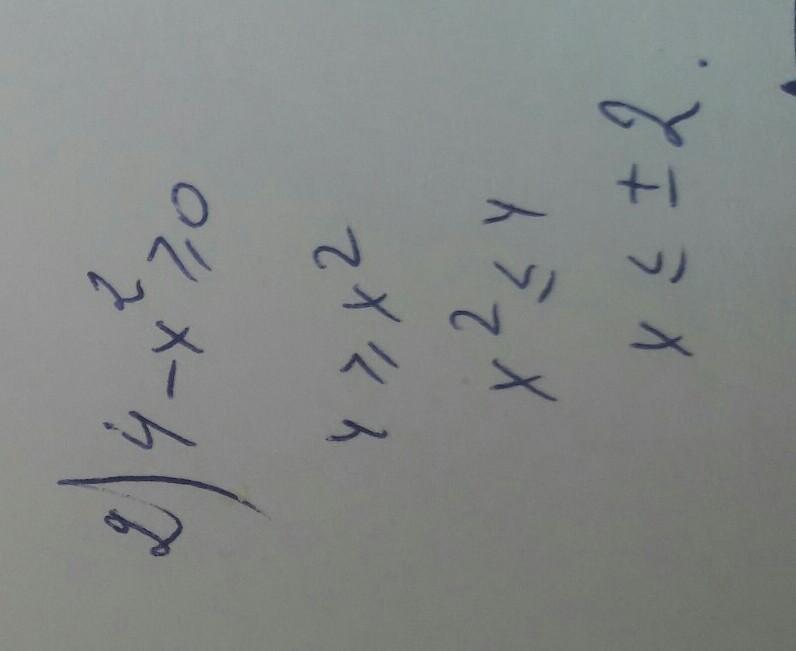 2) 4 - x² ≥ 0
4 ≥ x²
x² ≤ 4
x ≤ ± 2.